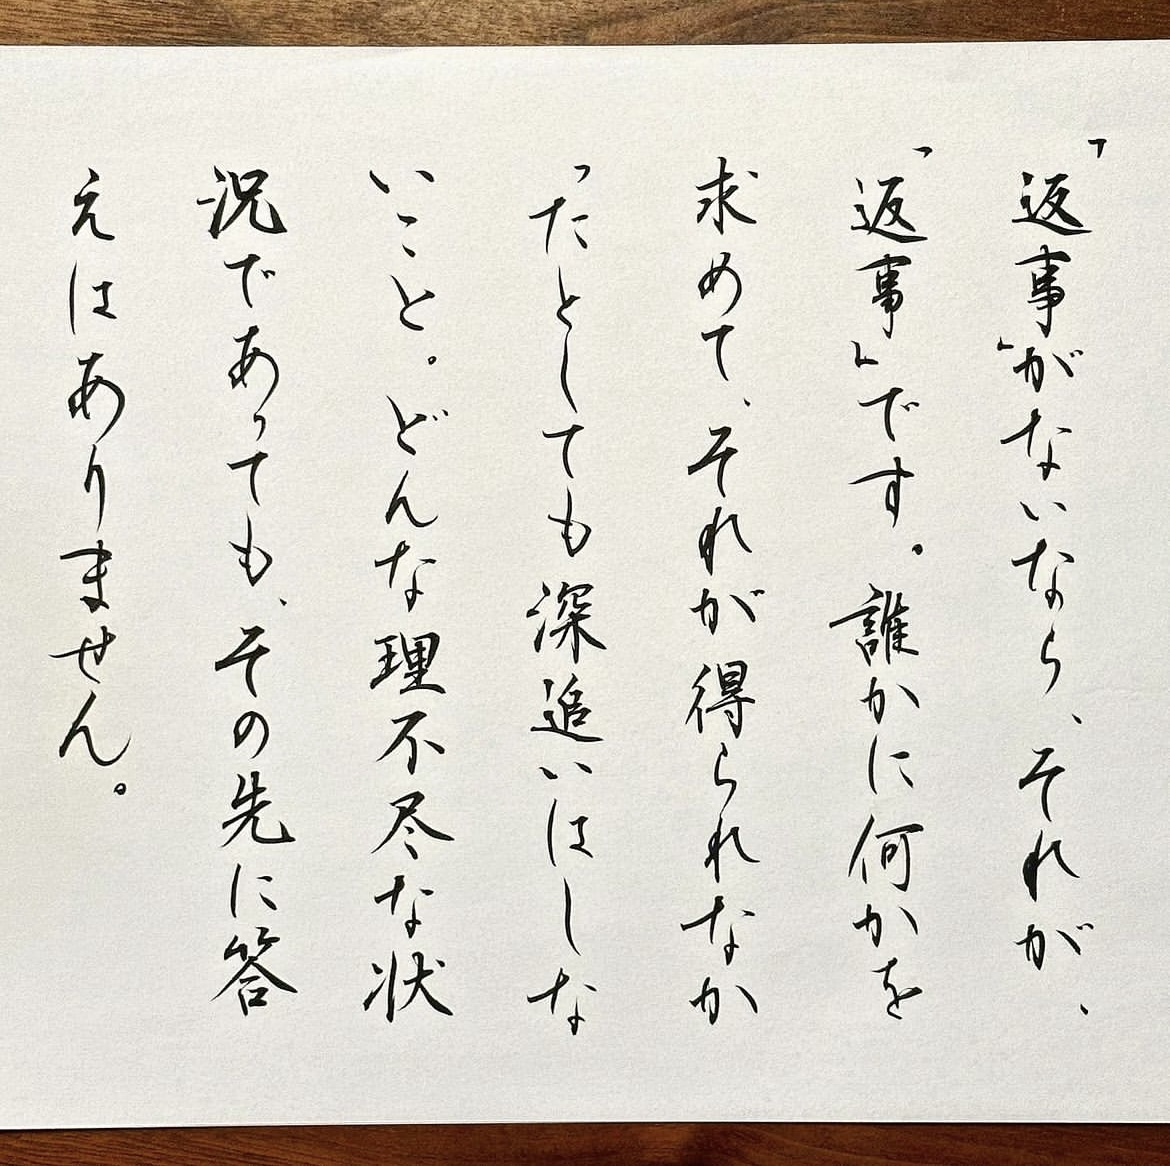 「返事」がないなら、それが、
「返事」です。誰かに何かを
求めて、それが得られなか
ったとしても深追いはしな
いこと。どんな理不尽な状
況であっても、その先に答
えはありません。